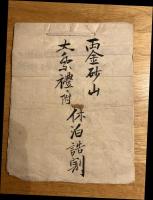 両金砂山
大祭禮附
休泊諸割